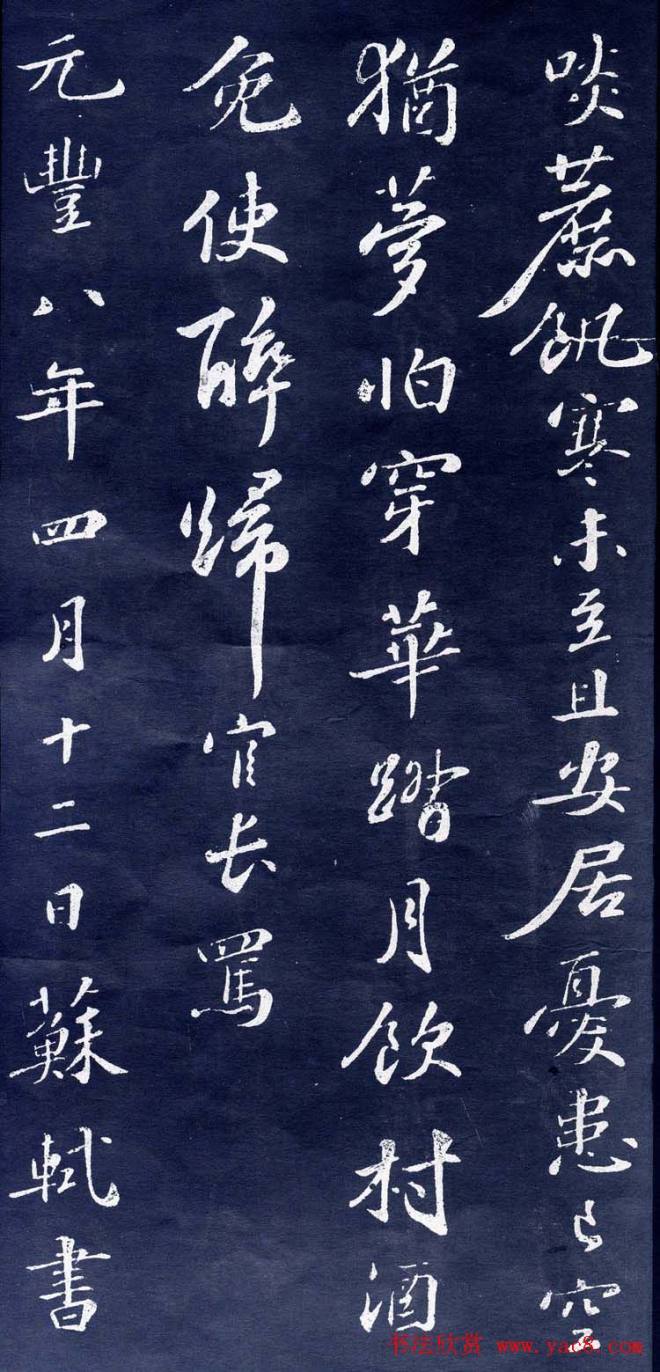 啖蔗飢寒未至且安居憂患已空
猶夢怕穿華踏月飲村酒
免使醉歸官長罵
元豐八年四月十二日蘇軾書
书法欣赏 www.yac8.com